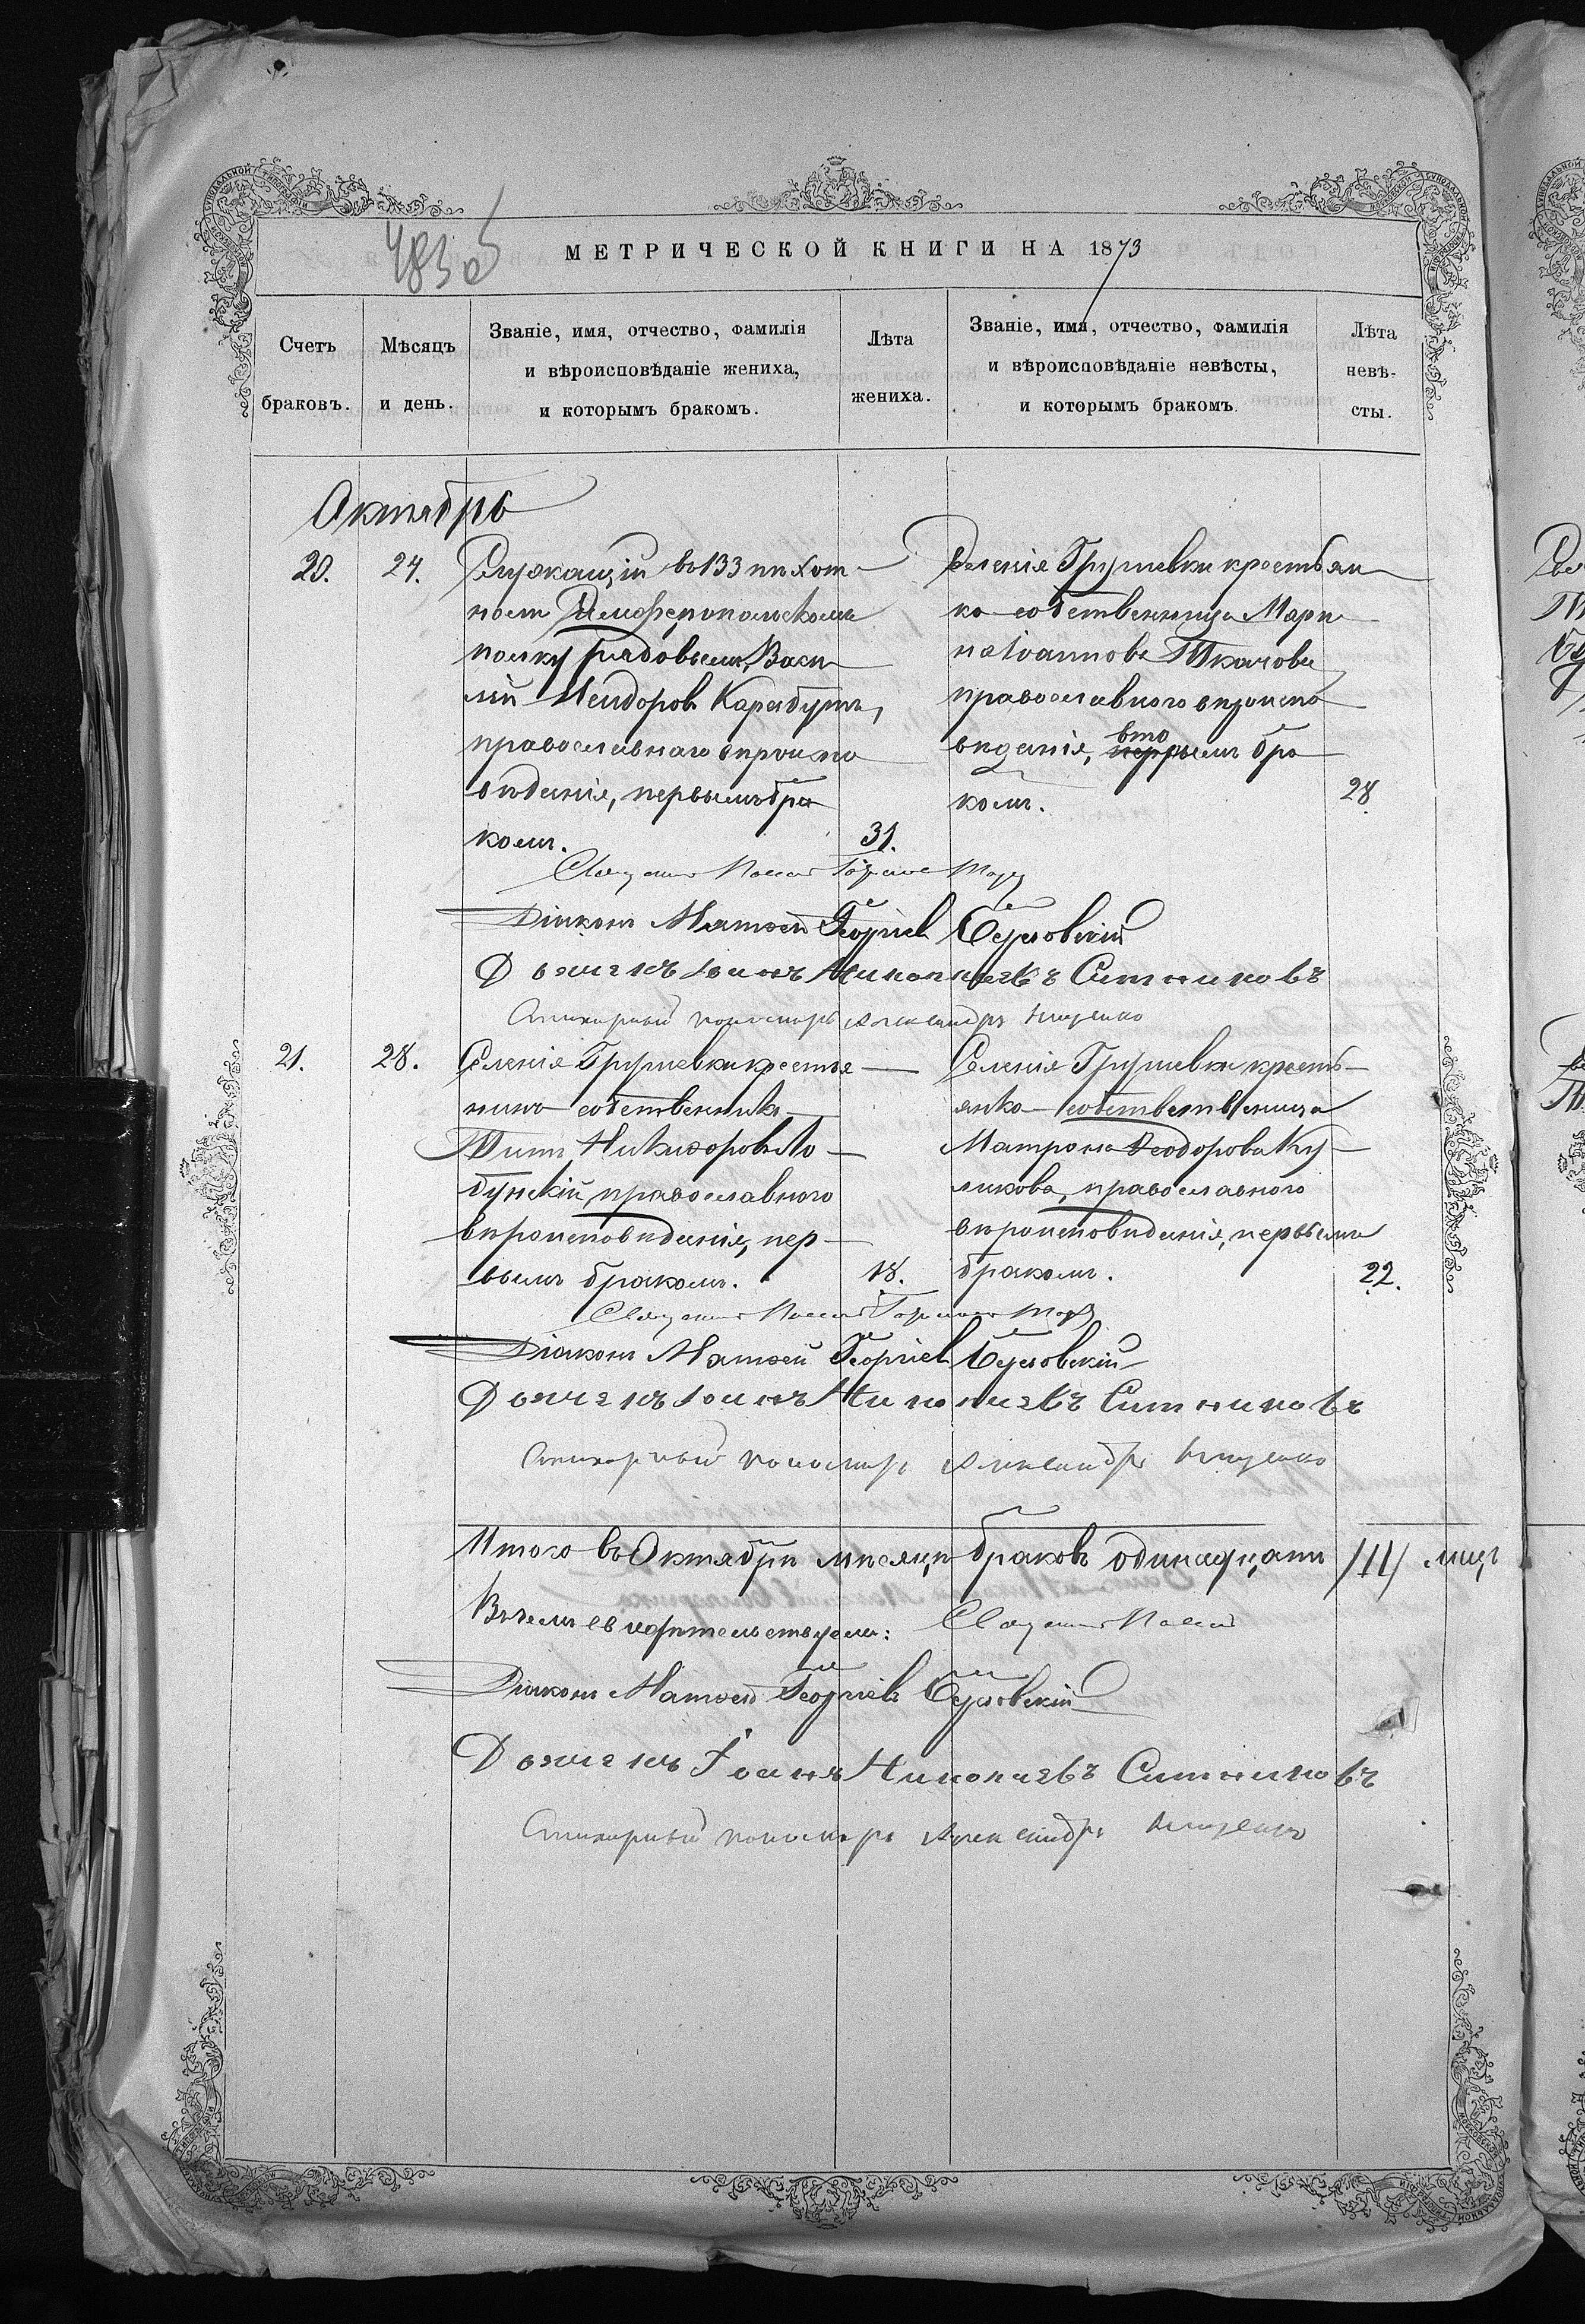 483об
МЕТРИЧЕСКОЙ КНИГИ НА 1873
Счетъ браковъ.
Мѣсяцъ и день.
Званіе, имя, отчество, фамилія
и вѣроисповѣданіе жениха,
и которымъ бракомъ.
Лѣта жениха.
Званіе, имя, отчество, фамилія
и вѣроисповѣданіе невѣсты,
и которымъ бракомъ.
Лѣта невѣ-
сты.
Октябрь
20. 24.
Служащій въ 133 пѣхот
номъ Симферопольскомъ
полку рядовымъ, Васи
лій Исидоровъ Карабутъ,
православнаго вѣроиспо
вѣданія, первымъ бра
комъ.
31.
Селенія Грушевки крестьян
ка собственница Мари
на Іоаннова Ткачова
православного вѣроиспо
вѣданія, вто
рымъ бра
комъ.
28
Священникъ
Діаконъ Матѳей Георгіевъ
Дьячекъ Іоанъ Никоноаевъ Ситниковъ
Стихарный пономарь Александръ
21. 28.
Селенія Грушевки крестья
нинъ собственникъ
Титъ Никифоровъ Ло
бунскій, православного
вѣроисповѣданія, пер
вымъ бракомъ.
18.
Селенія Грушевки кресть
янка собственница
Матрона Ѳеодорова Ку
ликова, православного
вѣроисповѣданія, первымъ
бракомъ.
22.
Священникъ
Діаконъ Матѳей Георгіевъ
Дьячекъ Іоанъ Ситниковъ
Стихарный пономарь Александръ
Итого въ Октябрѣ мѣсяцѣ браковъ одинадцать /11/
Въ чемъ свидѣтельствуемъ: Священникъ
Діаконъ Матѳей Георгіевъ
Дьячекъ Іоанъ Ситниковъ
Стихарный пономарь Александръ